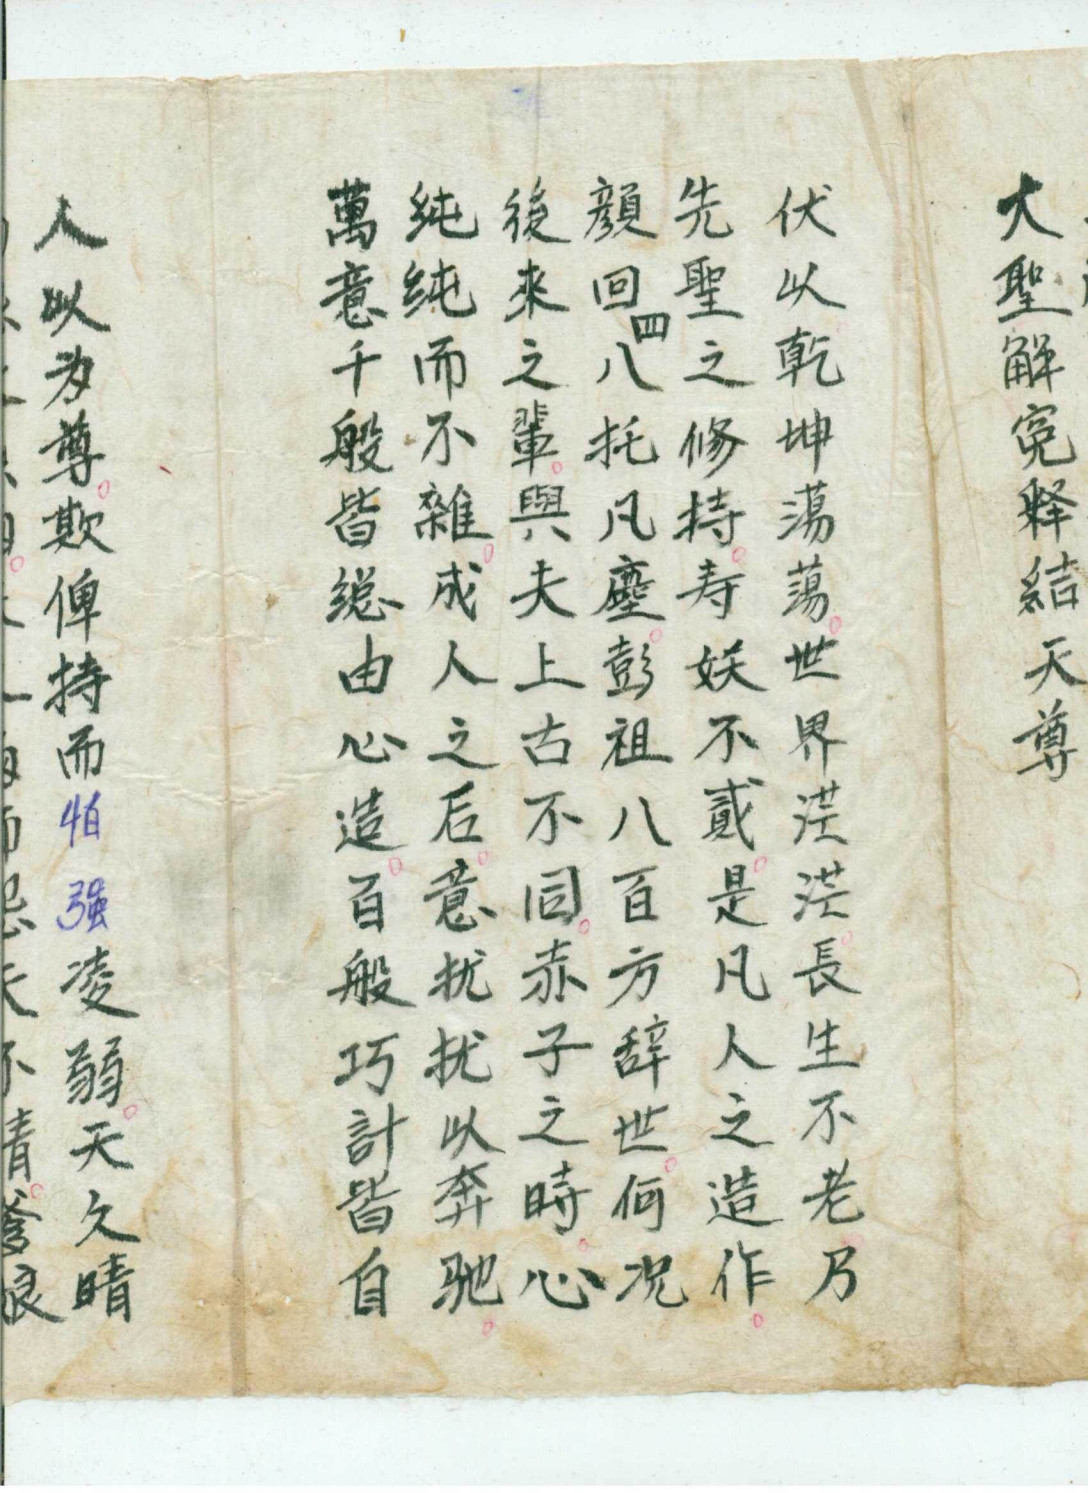 大聖解寃释結天尊
伏以乾坤蕩蕩世界茫茫長生不老乃
先聖之修持寿妖不貳是凡人之造作
顔回四八托凡塵彭祖八百方辞世何况
後來之輩與夫上古不同赤子之時心
纯纯而不雜成人之后意扰扰以奔驰
萬意千般皆総由心造百般巧計皆自
人以为尊欺俾持而怕强凌弱天久晴